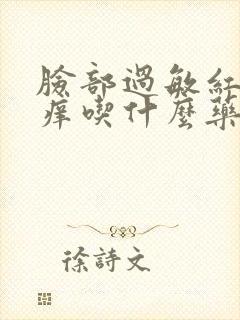 臉部過敏紅
痒喫什麼藥
徐詩文